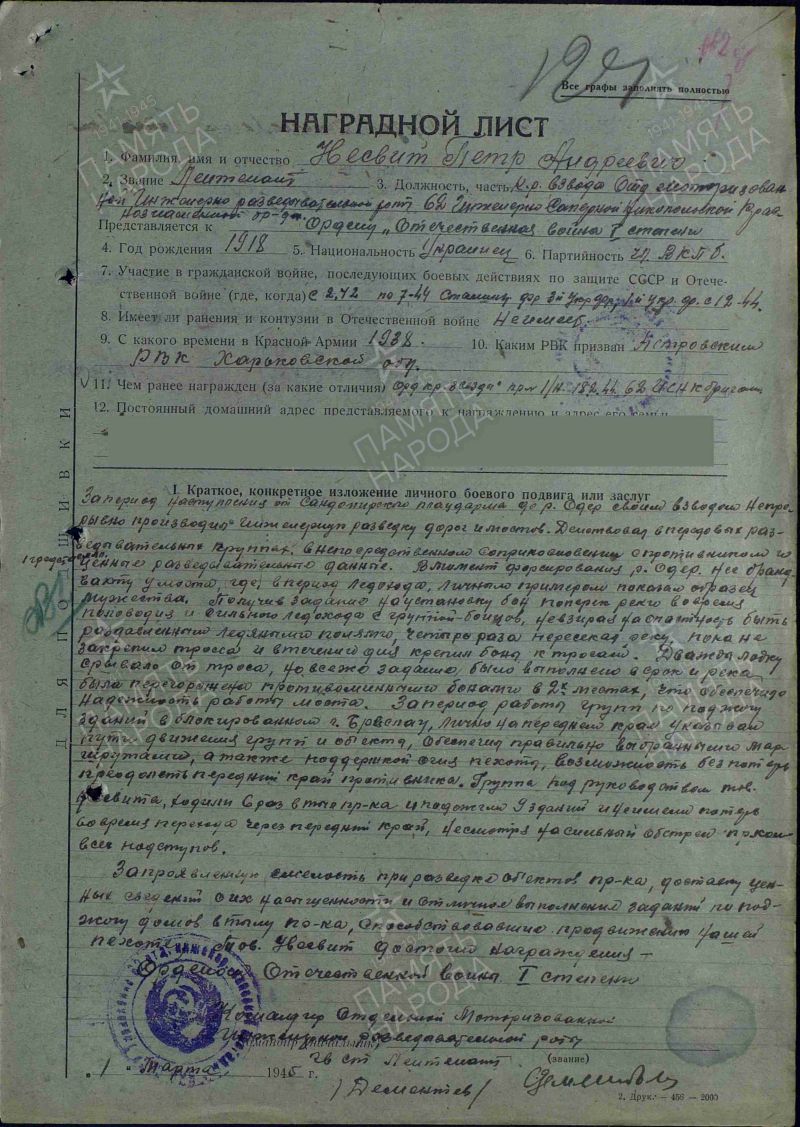 Все графы заполнять полностью
НАГРАДНОЙ ЛИСТ
1. Фамилия, имя и отчество Несвит Петр Андреевич
2. Звание Лейтенант 3. Должность, часть К-р. взвода Отд моторизован
ной Инженерно разведывательной роты 62 Инженерно Саперной Никопольской Кра
Представляется к Ордену „Отечественная война I степени
4. Год рождения 1918 5. Национальность Украинец 6. Партийность чл. ВКПб.
7. Участие в гражданской войне, последующих боевых действиях по защите СССР и Отече-
ственной войне (где, когда) с 2.42 по 7-44 Сталингр фр 3й Укр фр, 1й Укр. фр. с 12-44.
8. Имеет ли ранения и контузии в Отечественной войне Не имеет.
9. С какого времени в Красной Армии 1938 10. Каким РВК призван
РВК Харьковской обл.
11. Чем ранее награжден (за какие отличия) Орд кр. звезда" пр № 1/н- 62 бригаты
12. Постоянный домашний адрес представляемого к награждению и адрес его семьи
ДЛЯ ПОДШИВКИ
I. Краткое, конкретное изложение личного боевого подвига или заслуг
За период наступления от Сандомирского плацдарма до р. Одер своим взводом непре
рывно производил инженерную разведку дорог и мостов. Действовал в передовых раз-
ведывательных группах, в непосредственном соприкосновении с противником
ценные разведывательные данные. В момент форсирования р. Одер
у моста, где, в период ледохода, личным примером показал образец
мужества. Получив задание на установку бон поперек реки во время
половодия и сильного ледохода с группой бойцов, невзирая на опасность быть
раздавленным ледяными полями, четыре раза пересекал реку, пока не
закрепил троса и в течении дня крепил бона к тросам. Дважды лодку
срывало от троса, но все же задание было выполнено в срок и река
была перегорожена противоминными бонами в 2х местах, что обеспечило
надежность работы моста. За период работы групп по поджогу
зданий в блокированном г. Бреслау, лично на переднем крае указывал
пути движения групп и объекта, обеспечив правильно выбранными мар
шрутами, а также поддержкой огня пехоты, возможность без потерь
преодолеть передний край противника. Группа под руководством тов.
Несвита, ходили 6 раз в тыл пр-ка и подожгли 9 зданий и не имели потерь
во время перехода через передний край, несмотря на сильный обстрел пр-ком
всех подступов.
За проявленную смелость при разведке объектов пр-ка, доставку цен-
ных сведений о их насыщенности и отличное выполнение заданий по под-
жогу домов в тылу пр-ка, способствовавшие продвижению нашей
пехоты Тов. Несвит достоин награждения —
Орденом Отечественной война I степени
Командир Отдельной Моторизованной
Инженерной разведывательной роты
гв ст Лейтенант (звание)
„1 " Марта 1945 г.
/Дементьев/
2. Друк. — 456 — 2000
ПАМЯТЬ НАРОДА
1941-1945